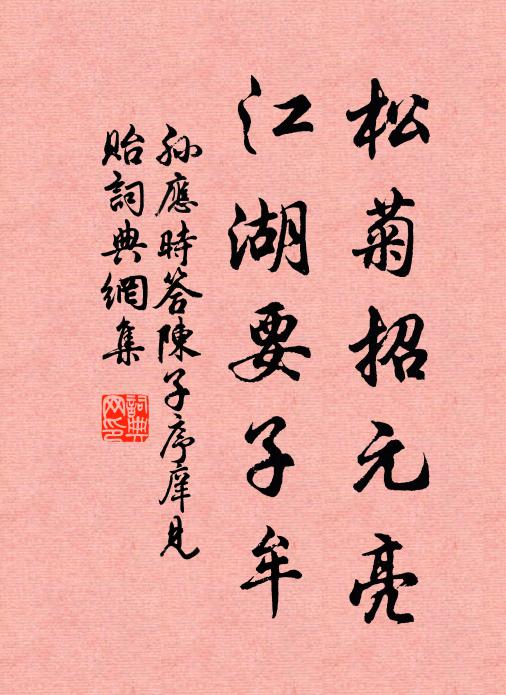 松菊招元亮
江湖要子牟
孙應時答陳子序庠見
貽詞典網集
詞典網印